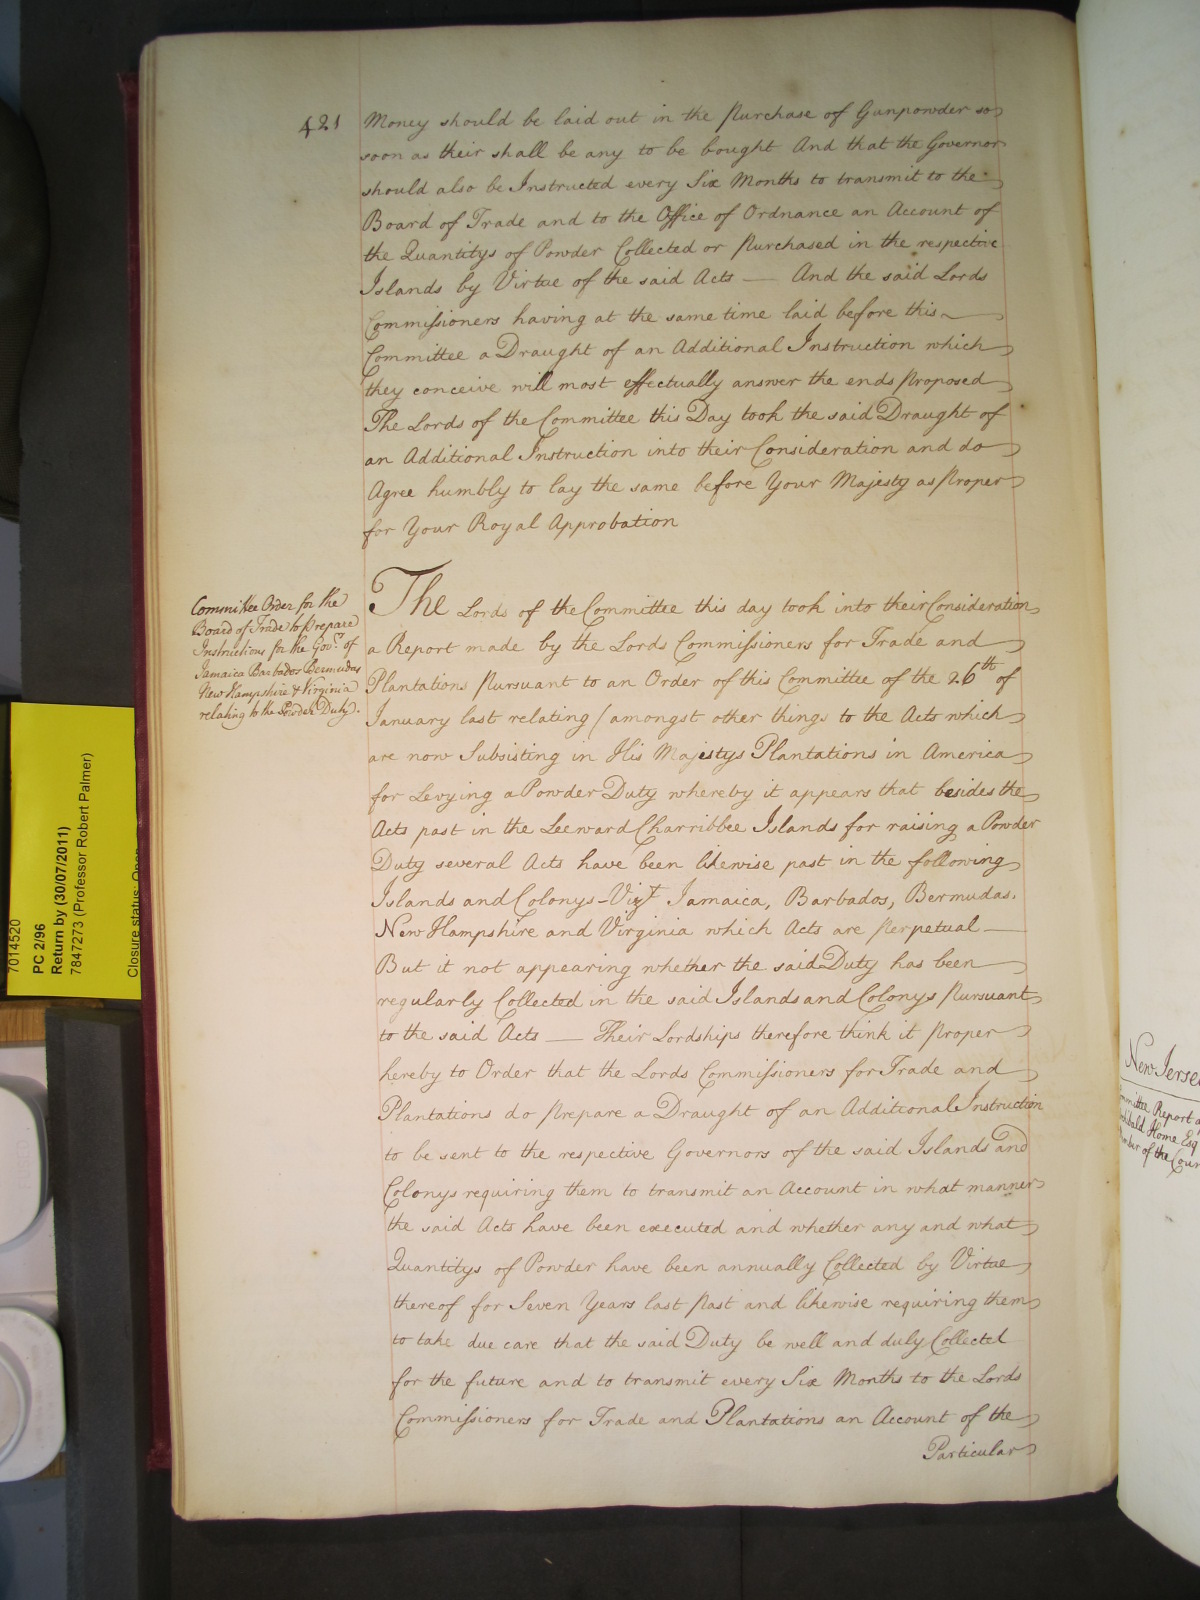 421
Money should be laid out in the Purchase of Gunpowder so
soon as their shall be any to be bought And that the Governor
should also be Instructed every Six Months to transmit to the
Board of Trade and to the Office of Ordnance an Account of
the Quantitys of Powder Collected or Purchased in the respective
Islands by Virtue of the said Acts — And the said Lords
Commissioners having at the same time laid before this
Committee a Draught of an Additional Instruction which
they conceive will most effectually answer the ends Proposed
The Lords of the Committee this Day took the said Draught of
an Additional Instruction into their Consideration and do
Agree humbly to lay the same before Your Majesty as Proper
for Your Royal Approbation
Committee Order for the
Board of Trade to Prepare
Instructions for the Govrs. of
Jamaica Barbados Bermudas
New Hampshire & Virginia
relating to the Powder Duty.
The Lords of the Committee this day took into their Consideration
a Report made by the Lords Commissioners for Trade and
Plantations Pursuant to an Order of this Committee of the 26th of
January last relating (amongst other things to the Acts which
are now Subsisting in His Majestys Plantations in America
for Levying a Powder Duty whereby it appears that besides the
Acts past in the Leeward Charribbee Islands for raising a Powder
Duty several Acts have been likewise past in the following
Islands and Colonys - Vizt Jamaica, Barbados, Bermudas.
New Hampshire and Virginia which Acts are Perpetual —
But it not appearing whether the said Duty has been
regularly Collected in the said Islands and Colonys Pursuant
to the said Acts — Their Lordships therefore think it Proper
hereby to Order that the Lords Commissioners for Trade and
Plantations do Prepare a Draught of an Additional Instruction
to be sent to the respective Governors of the said Islands and
Colonys requiring them to transmit an Account in what manner
the said Acts have been executed and whether any and what
Quantitys of Powder have been annually Collected by Virtue
thereof for Seven Years last Past and likewise requiring them
to take due care that the said Duty be well and duly Collected
for the future and to transmit every Six Months to the Lords
Commissioners for Trade and Plantations an Account of the
Particular
7014520
PC 2/96
Return by (30/07/2011)
7847273 (Professor Robert Palmer)
Closure status: Open
New Jerse
Report
Home Esq
of the Coun